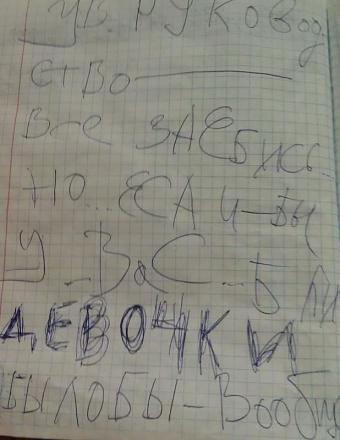 УВ. РУКОВОД
СТВО
ВСЕ ЗАЕБИСЬ
НО... ЕСЛИ-БЫ
У-ВАС... БЛИ
ДЕВОЧКИ
БЫЛОБЫ-ВООбщ